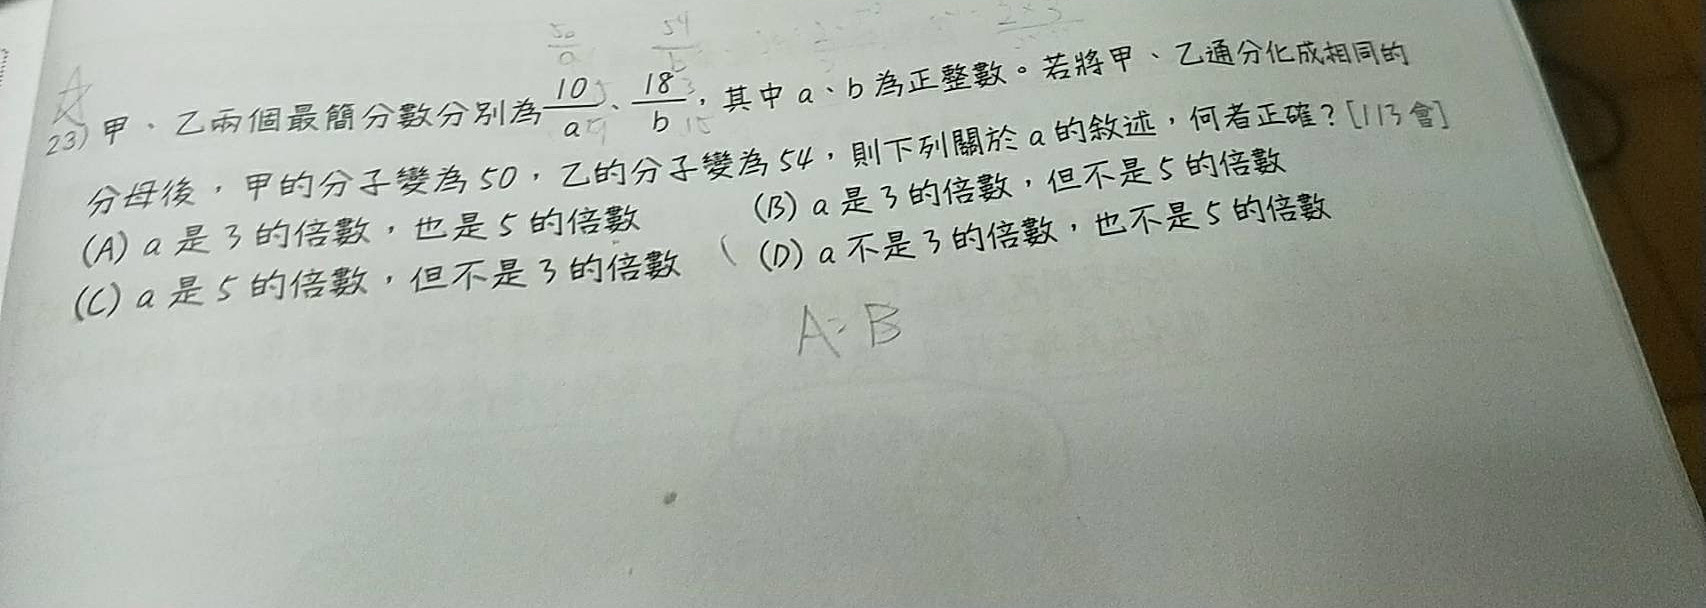 50/a 54/b
23) 甲、乙兩個最簡分數分別為 10/a、18/b，其中 a、b 為正整數。若將甲、乙通分化成相同的
分母後，甲的分子變為50，乙的分子變為54，則下列關於 a 的敘述，何者正確？[113會]
(A) a 是 3 的倍數，也是 5 的倍數 (B) a 是 3 的倍數，但不是 5 的倍數
(C) a 是 5 的倍數，但不是 3 的倍數 (D) a 不是 3 的倍數，也不是 5 的倍數
A: B